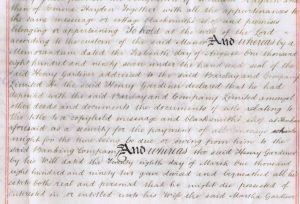 than of Emma Haydon Together with all the appurtenances to
the same messuage or cottage blacksmiths shop and premises
belonging or appertaining To hold at the will of the Lord
according to the custom of the said Manor And whereas by a
Memorandum dated the day of October One thousand
eight hundred and ninety seven under the hand and seal of the
said Henry Gardiner addressed to the said Banking and Company
Limited he the said Henry Gardiner declared that he had
with the said Banking and Company Limited amongst
other deeds and documents the documents of title relating to
the title to a copyhold messuage and blacksmiths shop at
aforesaid as a security for the payment of all moneys which
might for the time being be due or owing from him to the
said Banking Company And whereas the said Henry Gardiner
by his Will dated the Twenty eighth day of March One thousand
eight hundred and ninety two gave devised and bequeathed all his
estate both real and personal that he might die possessed of
interested in or entitled unto his Wife the said Martha Gardiner